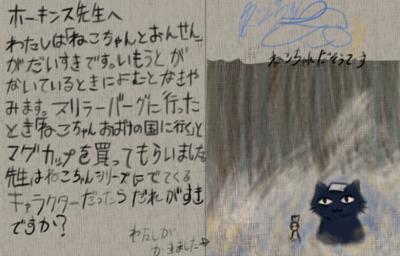 ホーキンス先生へ
わたしは「ねこちゃんとおんせん」
がだいすきです。いもうとが
ないているときによむとなきや
みます。スリラーバーグに行った
とき「ねこちゃんおばけの国に行く」と
マグカップを買ってもらいました
先生はねこちゃんシリーズにでてくる
キャラクターだったらだれがすき
ですか?
わたしが
かきましたや
ねこちゃんだそうです